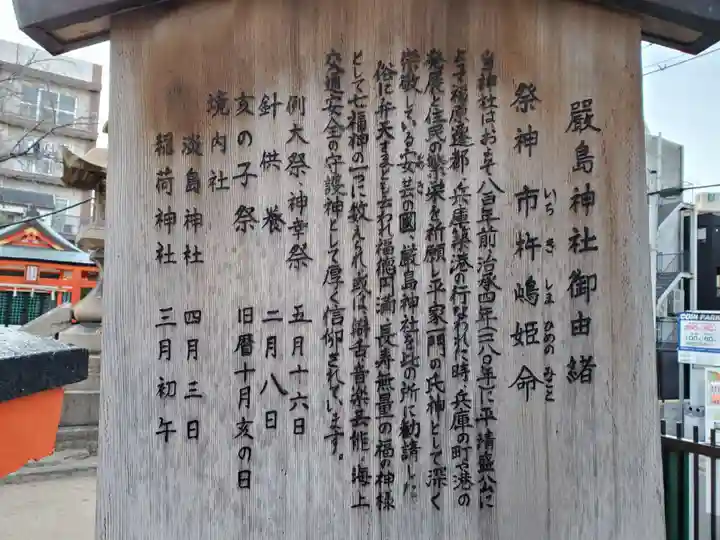 嚴島神社御由緒
祭神 市杵嶋姫命
いち き しま ひめの みこと
当神社は、およそ八百年前、治承四年(一一八〇年)に平清盛公に
よる福原遷都、兵庫築港の行なわれた時、兵庫の町や港の
発展と住民の繁栄を祈願し平家一門の氏神として深く
崇敬している安芸の國 嚴島神社を此の所に勧請した
俗に弁天さまとも云われ福徳円満、長寿無量の福の神様
として七福神の一つに数えられ、或は、辯舌音楽芸能、海上
交通安全の守護神として厚く信仰されています。
例大祭、神幸祭 五月十六日
針供養 二月八日
亥の子祭 旧暦十月亥の日
境内社
淡島神社 四月三日
稲荷神社 三月初午
COIN PARK